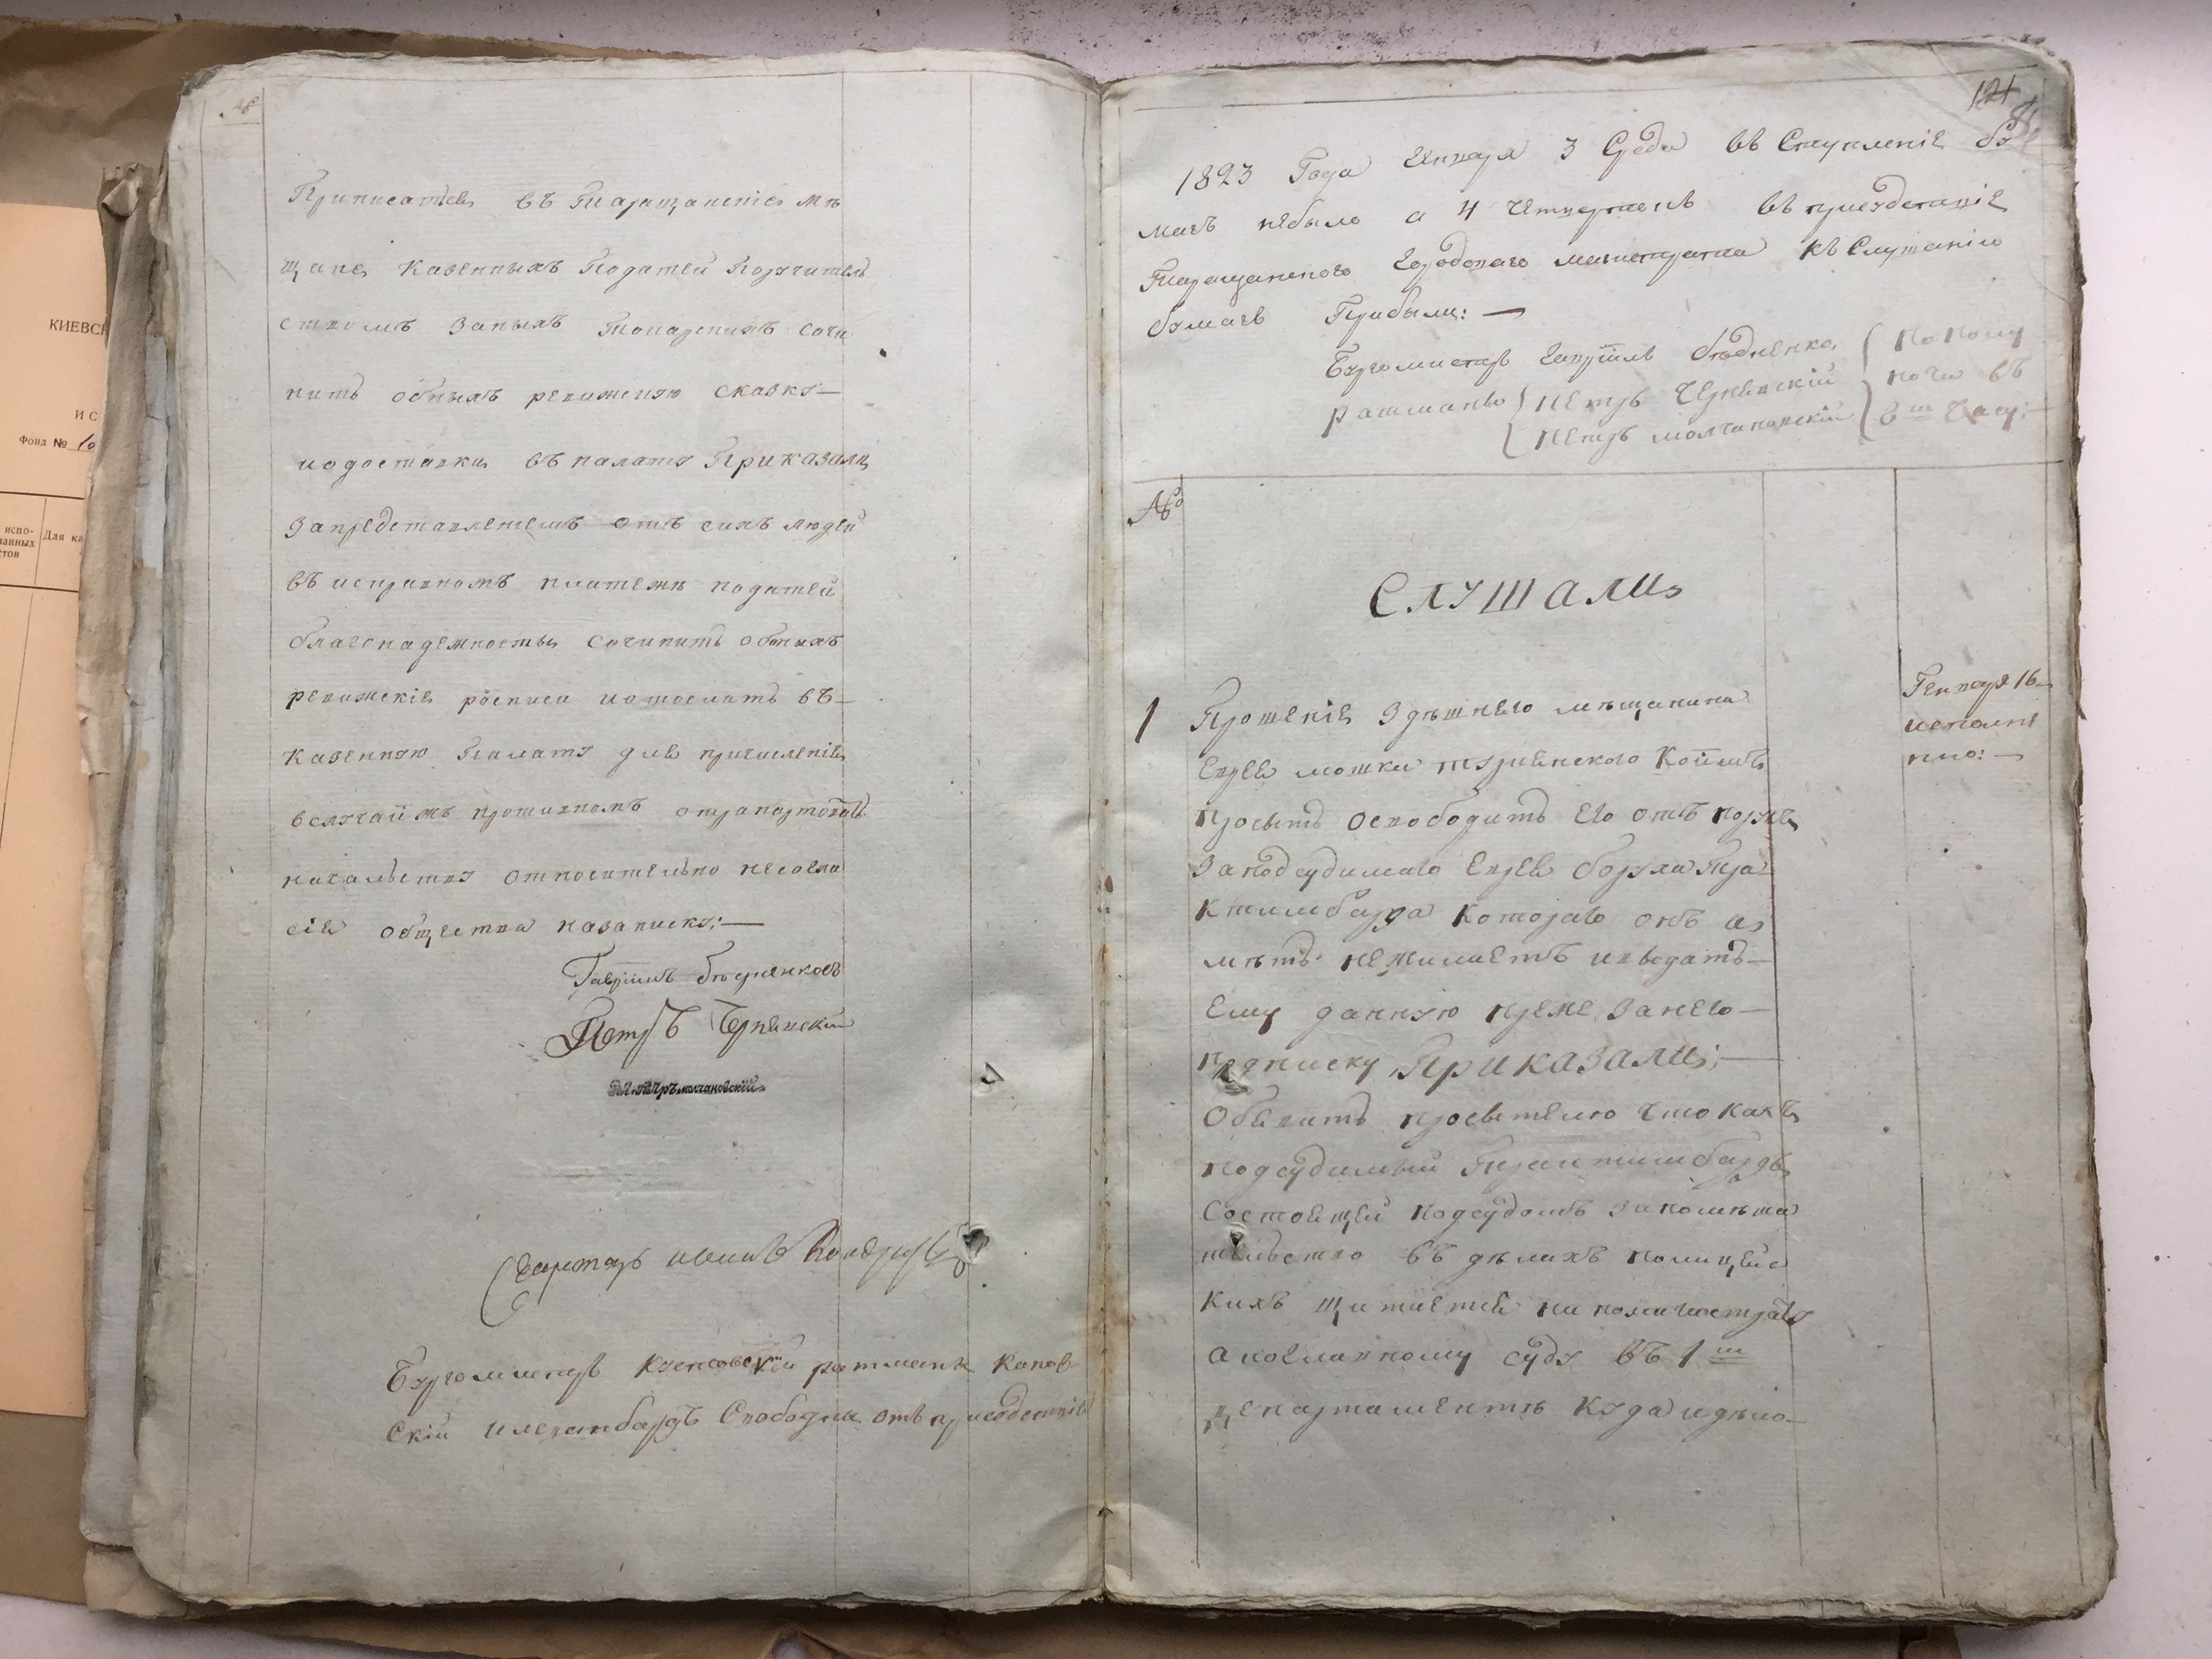 КИЕВС
И С
Фонд № 10
испо-
ванных
стов
Для ка
№
Приписатся въ Таращанскіе мѣ
щане, казенныхъ Податей Поручитель
ствомъ Заныхъ сочи
нить обныхъ ревижскую сказку —
идоставки въ палату Приказали
Запредставленіемъ отъ сихъ людей
въ исправномъ платежѣ податей
благонадежносты сочинить обоныхъ
ревижскіе росписи иотослать въ —
казенную Палату для причисленія
вслучай жъ противномъ отрапортовать
начальству относительно несогла
сія общества назаписку: —
Гавріилъ Бѣдненковъ
Петръ Чернѣвскій
Петръ молчановскій
Секретарь
Бургомистръ ратманъ Канов
скій Свободны отъ присудствія
121
1823 Года Генваря 3 Среда въ Ступленіе бу
магъ небыло а 4 Четвертокъ въ присудствіе
Таращанского Городоваго магистрата къ Слушанію
бумагъ Прибыли: —
Бургомистръ Гавріилъ бѣдненко,
ратманы Петръ Чернѣвскій
Петръ молчановскій
по полу
ночи въ
8 м Часу: —
№
Слушали
1 Прошеніе Здѣшнего мѣщанина
Еврея мошки турчѣнского Коимъ
просытъ Освободить Его отъ порукъ
Заподсудимаго Еврея боруха Тра
ктимбарда Котораго онъ а,
мѣть нежилаетъ ивыдать —
Ему данную преже, Занего —
подписку, Приказали: —
Обявить просытелю Что какъ
подсудимый Трактимбардъ
Состоящій подсудомъ запомѣша
тельство въ дѣлахъ полицейс
кихъ щитается ни помагистрату
апоглавному суду въ 1 м
департаментѣ Куда идѣло —
Генваря 16 —
исполне
нно: —